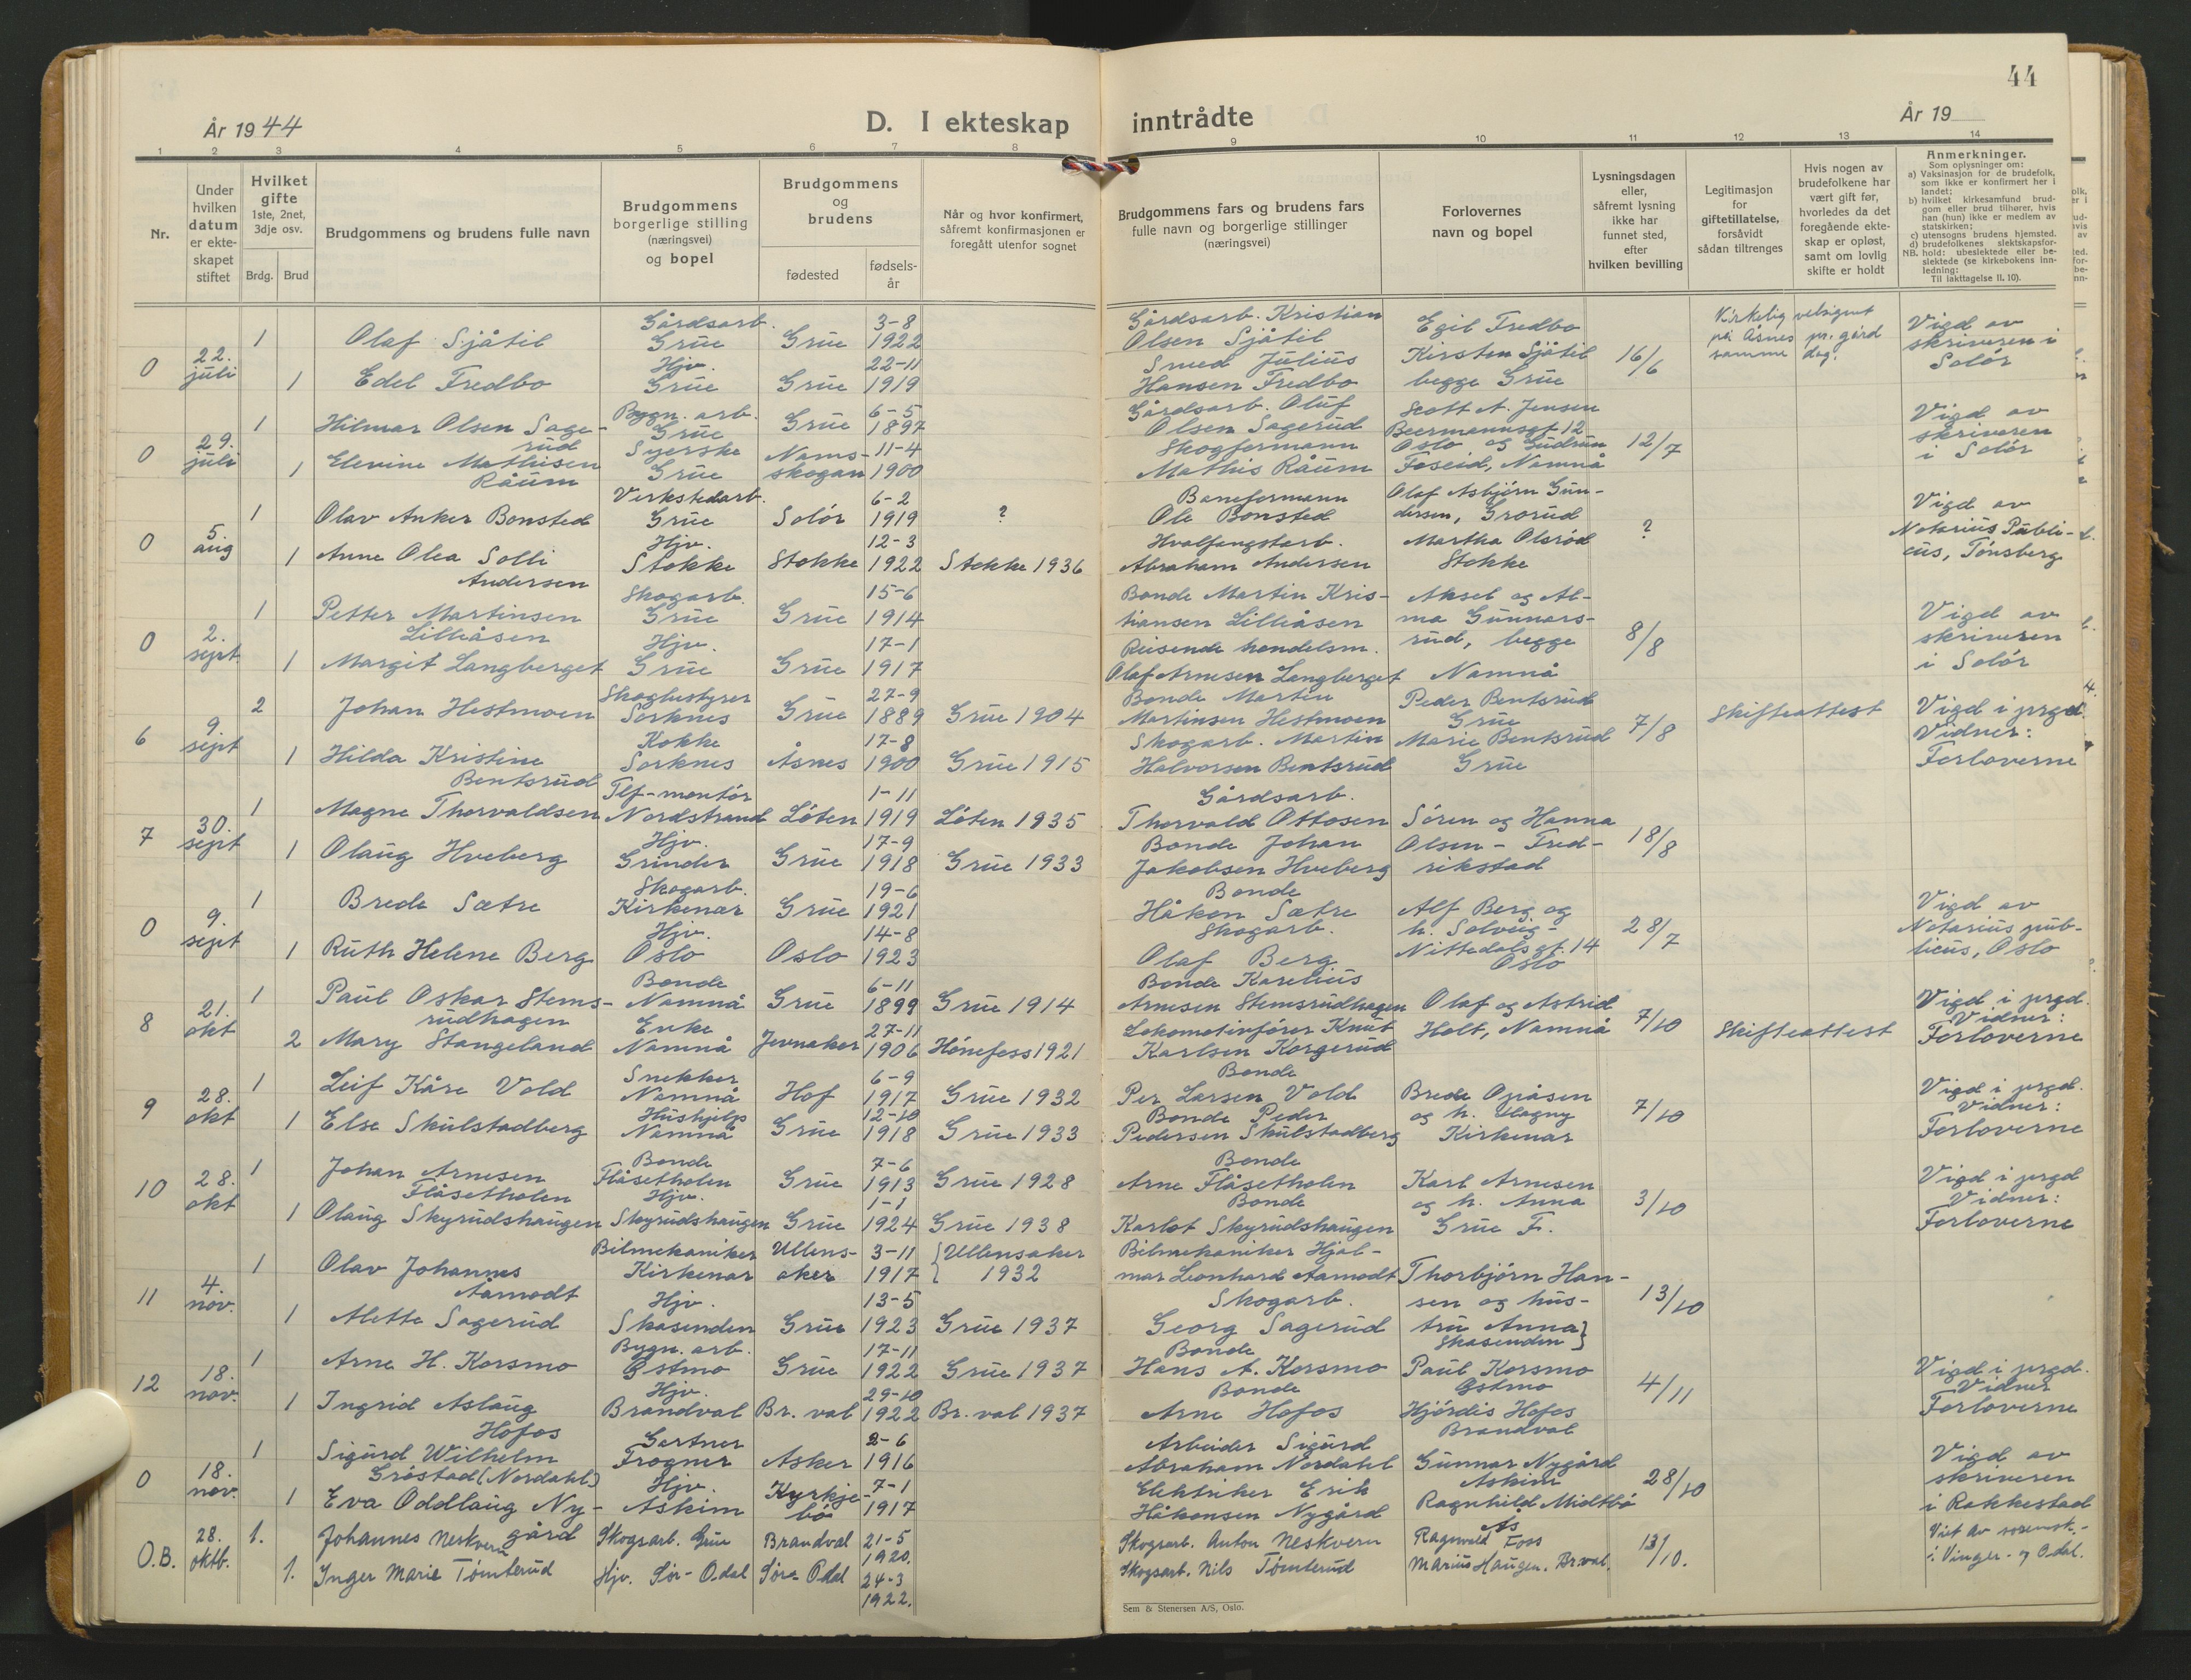 44
År 1944
D. I ekteskap inntrådte
År 19
1 2 3 4 5 6 7 8 9 10 11 12 13 14
Nr.
Under
hvilken
datum
er ekte-
skapet
stiftet
Hvilket
gifte
1ste, 2net,
3dje osv.
Brdg. Brud
Brudgommens og brudens fulle navn
Brudgommens
borgerlige stilling
(næringsvei)
og bopel
Brudgommens
og
brudens
fødested
fødsels-
år
Når og hvor konfirmert,
såfremt konfirmasjonen er
foregått utenfor sognet
Brudgommens fars og brudens fars
fulle navn og borgerlige stillinger
(næringsvei)
Forlovernes
navn og bopel
Lysningsdagen
eller,
såfremt lysning
ikke har
funnet sted,
efter
hvilken bevilling
Legitimasjon
for
giftetillatelse,
forsåvidt
sådan tiltrenges
Hvis nogen av
brudefolkene har
vært gift før,
hvorledes da det
foregående ekte-
skap er opløst,
samt om lovlig
skifte er holdt
Anmerkninger.
Som oplysninger om:
a) Vaksinasjon for de brudefolk,
som ikke er konfirmert her i
landet;
b) hvilket kirkesamfund brud-
gom eller brud tilhører, hvis
han (hun) ikke er medlem av
statskirken;
c) utensogns brudens hjemsted.
d) brudefolkenes slektskapsfor-
NB. hold: ubeslektede eller be-
slektede (se kirkebokens inn-
ledning:
Til iakttagelse II. 10).
0
22.
juli
1
Olaf Sjåtil
Gårdsarb.
Grue
Grue
3-8
1922
Gårdsarb. Kristian
Olsen Sjåtil
Egil Fredbo
Kirsten Sjåtil
begge Grue
16/6
Kirkelig velsignet
på Åsnes pr. gård
samme dag.
Vigd av
skriveren i
Solør
1
Edel Fredbo
Hjv.
Grue
Grue
22-11
1919
Smed Julius
Hansen Fredbo
0
29.
juli
1
Hilmar Olsen Sage-
rud
Bygn. arb.
Grue
Grue
6-5
1897
Gårdsarb. Oluf
Olsen Sagerud
Scott A. Jensen
Beermannsgt 12
Oslo og Gudrun
Foseid, Namnå
12/7
Vigd av
skriveren
i Solør
1
Elevine Mathisen
Råum
Syerske
Grue
Nams-
skogan
11-4
1900
Skogformann
Mathis Råum
0
5.
aug
1
Olav Anker Bonsted
Verkstedarb.
Grue
Solør
6-2
1919
?
Baneformann
Ole Bonsted
Olaf Asbjørn Gun-
dersen, Grorud
Martha Olsrød
Stokke
?
Vigd av
Notarius Publi-
cus, Tønsberg
1
Anne Olea Solli
Andersen
Hjv.
Stokke
Stokke
12-3
1922
Stokke 1936
Hvalfangstarb.
Abraham Andersen
0
2.
sept
1
Petter Martinsen
Lilleåsen
Skogarb.
Grue
Grue
15-6
1914
Bonde Martin Kris-
tiansen Lilleåsen
Aksel og Al-
ma Gunnars-
rud, begge
Namnå
8/8
Vigd av
skriveren
i Solør
1
Margit Langberget
Hjv.
Grue
Grue
17-1
1917
Reisende handelsm.
Olaf Arnesen Langberget
6
9.
sept
2
Johan Hestmoen
Skogbestyrer
Sorknes
Grue
27-9
1889
Grue 1904
Bonde Martin
Martinsen Hestmoen
Peder Bentsrud
Grue
Marie Bentsrud
Grue
7/8
Skifteattest
Vigd i prgd.
Vidner:
Forloverne
1
Hilda Kristine
Bentsrud
Kokke
Sorknes
Åsnes
17-8
1900
Grue 1915
Skogarb. Martin
Halvorsen Bentsrud
7
30.
sept
1
Magne Thorvaldsen
Tlf-montør
Nordstrand
Løten
1-11
1919
Løten 1935
Gårdsarb.
Thorvald Ottosen
Søren og Hanna
Olsen - Fred-
rikstad
18/8
1
Olaug Hveberg
Hjv.
Grinder
Grue
17-9
1918
Grue 1933
Bonde Johan
Jakobsen Hveberg
0
9.
sept
1
Brede Sætre
Skogarb.
Kirkenær
Grue
19-6
1921
Bonde
Håkon Sætre
Alf Berg og
h. Solveig -
Nittedalsgt. 14
Oslo
28/7
Vigd av
Notarius pub-
licus, Oslo
1
Ruth Helene Berg
Hjv.
Oslo
Oslo
14-8
1923
Skogarb.
Olaf Berg
8
21.
okt
1
Paul Oskar Stems-
rudhagen
Bonde
Namnå
Grue
6-11
1899
Grue 1914
Bonde Karelius
Arnesen Stemsrudhagen
Olaf og Astrid
Holt, Namnå
7/10
Skifteattest
Vigd i prgd.
Vidner:
Forloverne
2
Mary Stangeland
Enke
Namnå
Jevnaker
27-11
1906
Hønefoss 1921
Lokomotivfører Knut
Karlsen Korgerud
9
28.
okt
1
Leif Kåre Vold
Snekker
Namnå
Hof
6-9
1917
Grue 1932
Bonde
Per Larsen Vold
Brede Opåsen
og h. Magny
Kirkenær
7/10
Vigd i prgd.
Vidner:
Forloverne
1
Else Skulstadberg
Hushjelp
Namnå
Grue
12-10
1918
Grue 1933
Bonde Peder
Pedersen Skulstadberg
10
28.
okt
1
Johan Arnesen
Flåsetholen
Bonde
Flåsetholen
Grue
7-6
1913
Grue 1928
Bonde
Arne Flåsetholen
Karl Arnesen
og h. Anna
Grue F.
3/10
Vigd i prgd
Vidner:
Forloverne
1
Olaug Skyrudshaugen
Hjv.
Skyrudshaugen
Grue
1-1
1924
Grue 1938
Bonde
Karlot Skyrudshaugen
11
4.
nov.
1
Olav Johannes
Aamodt
Bilmekaniker
Kirkenær
Ullens-
aker
3-11
1917
Ullensaker
1932
Bilmekaniker Hjal-
mar Leonhard Aamodt
Thorbjørn Han-
sen og hus-
tru Anna
Skasenden
13/10
1
Alette Sagerud
Hjv.
Skasenden
Grue
13-5
1923
Grue 1937
Skogarb.
Georg Sagerud
12
18.
nov.
1
Arne H. Korsmo
Bygn. arb.
Østmo
Grue
17-11
1922
Grue 1937
Bonde
Hans A. Korsmo
Paul Korsmo
Østmo
Hjørdis Hofos
Brandval
4/11
Vigd i prgd.
Vidner
Forloverne
1
Ingrid Aslaug
Hofos
Hjv.
Brandval
Br. val
29-10
1922
Br. val 1937
Bonde
Arne Hofos
0
18.
nov.
1
Sigurd Wilhelm
Grøstad (Nordahl)
Gartner
Frogner
Asker
2-6
1916
Arbeider Sigurd
Abraham Nordahl
Gunnar Nygård
Askim
Ragnhild Midtbø
Ås
28/10
Vigd av
skriveren
i Rakkestad
1
Eva Oddlaug Ny-
gård
Hjv.
Askim
Kyrkje-
bø
7-1
1917
Elektriker Erik
Håkonsen Nygård
O.B.
28.
oktb.
1.
Johannes Neskvern
Skogsarb. Grue
Brandval
21-5
1920.
Skogsarb. Anton Neskvern
Ragnvald Foss
Marius Haugen, Br.val.
13/10.
Viet av sorensk.
i Vinger- og Odal.
1.
Inger Marie Tømterud
Hjv. Sør-Odal
Søra Odal
24-3
1922.
Skogsarb. Nils Tømterud
Sem & Stenersen A/S, Oslo.